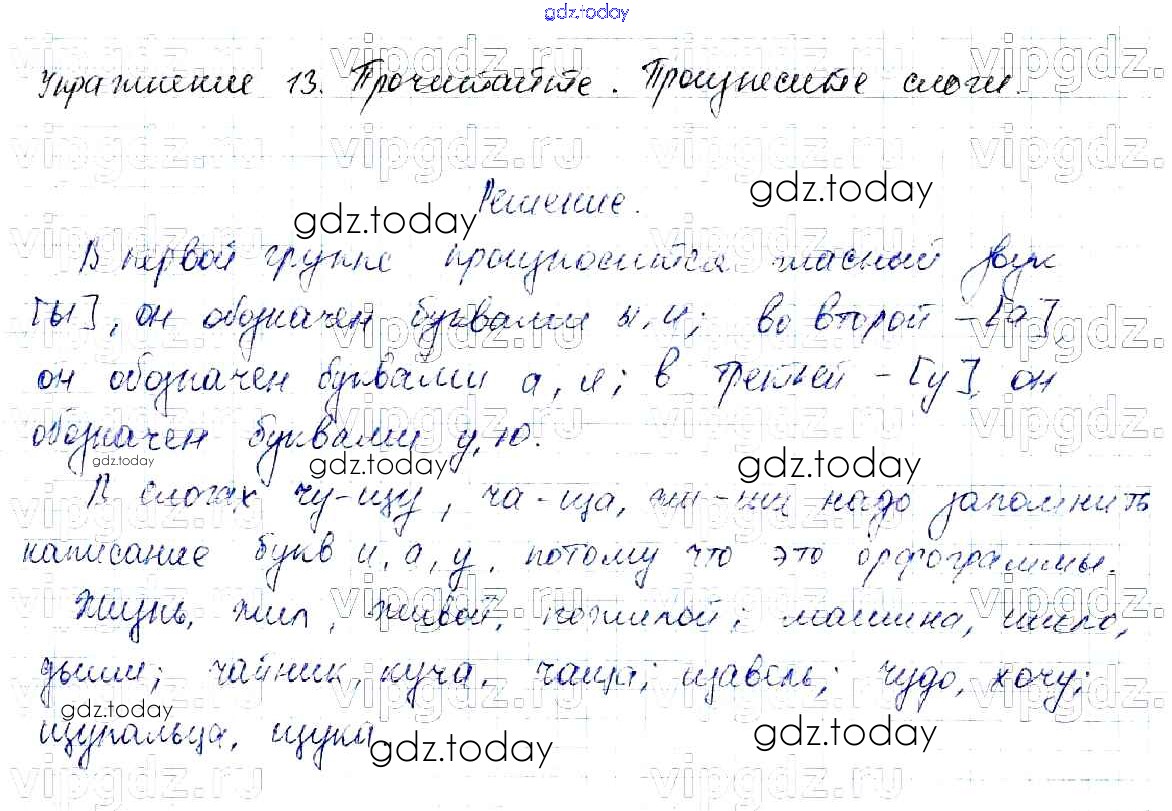 gdz.today
Упражнение 13. Прочитайте. Произнесите слоги.
Решение.
В первой группе произносится гласный звук
[ы], он обозначен буквами ы, и; во второй - [а],
он обозначен буквами а, я; в третьей - [у], он
обозначен буквами у, ю.
В слогах чу-щу, ча-ща, жи-ши надо запомнить
написание букв и, а, у, потому что это орфограммы.
Жизнь, жил, живой, пожилой; машина, шило,
дыши; чайник, куча, чаща; щавель; чудо, хочу;
щупальца, щука.